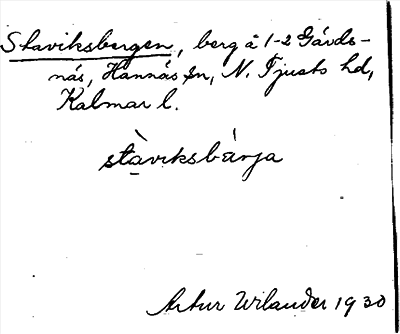 Staviksbergen, berg å 1-2 Gårds-
näs, Hannäs sn, N. Tjusts hd,
Kalmar l.
stàviksbárja
Artur Wilander 1930